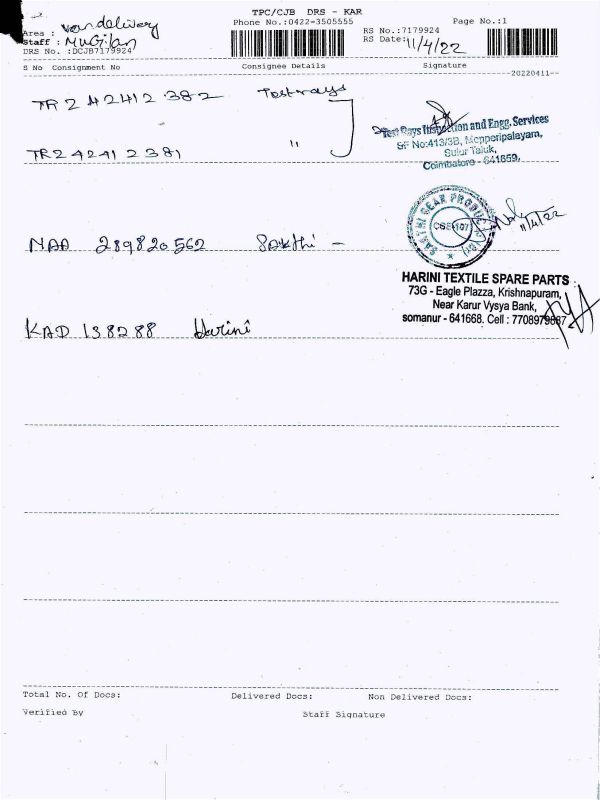 TPC/CJB DRS - KAR
Area : Van delivery
Phone No.:0422-3505555
Page No.:1
Staff : Mugilan
RS No.:7179924
DRS No. :DCJB7179924
RS Date: 11/4/22
S No Consignment No
Consignee Details
Signature
20220411
TR242412382 Testrays
Test Rays Inspection and Engg. Services
SF No:413/3B, Mopperipalayam,
Sulur Taluk,
Coimbatore - 641659.
TR242412381 "
SAKTHI GEAR PRODUCTS
CBE-107
11/4/22
NAA 289820562 Sakthi -
HARINI TEXTILE SPARE PARTS
73G - Eagle Plazza, Krishnapuram,
Near Karur Vysya Bank,
somanur - 641668. Cell :
KAD 138288 Harini
Total No. Of Docs:
Delivered Docs:
Non Delivered Docs:
Verified By
Staff Signature